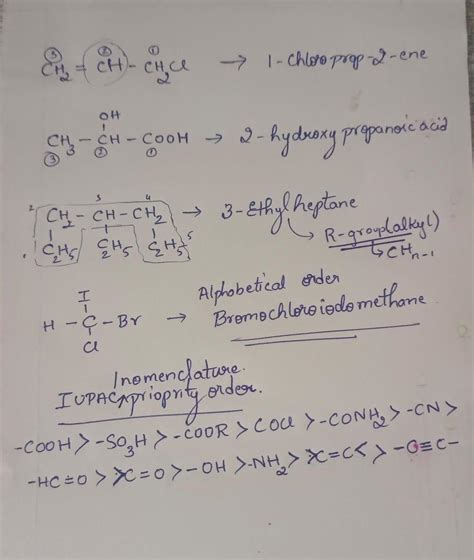 ③ ② ①
CH₂ = CH – CH₂Cl → 1-chloroprop-2-ene
OH
CH₃ – CH – COOH → 2-hydroxy propanoic acid
③ ② ①
2 3 4
CH₂ – CH – CH₂ → 3-Ethylheptane
1 C₂H₅ C₂H₅ C₂H₅ 5
R-group(alkyl)
CHₙ₋₁
I
H – C – Br → Alphabetical order
Cl
Bromochloroiodomethane.
Inomenclature.
IUPAC priority order.
-COOH > -SO₃H > -COOR > COCl > -CONH₂ > -CN >
-HC=O > >C=O > -OH > -NH₂ > >C=C< > -C≡C-